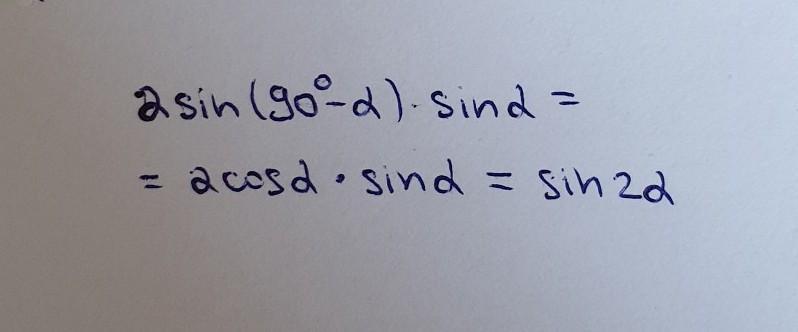 2sin(90°-α)·sinα =
= 2cosα · sinα = sin2α